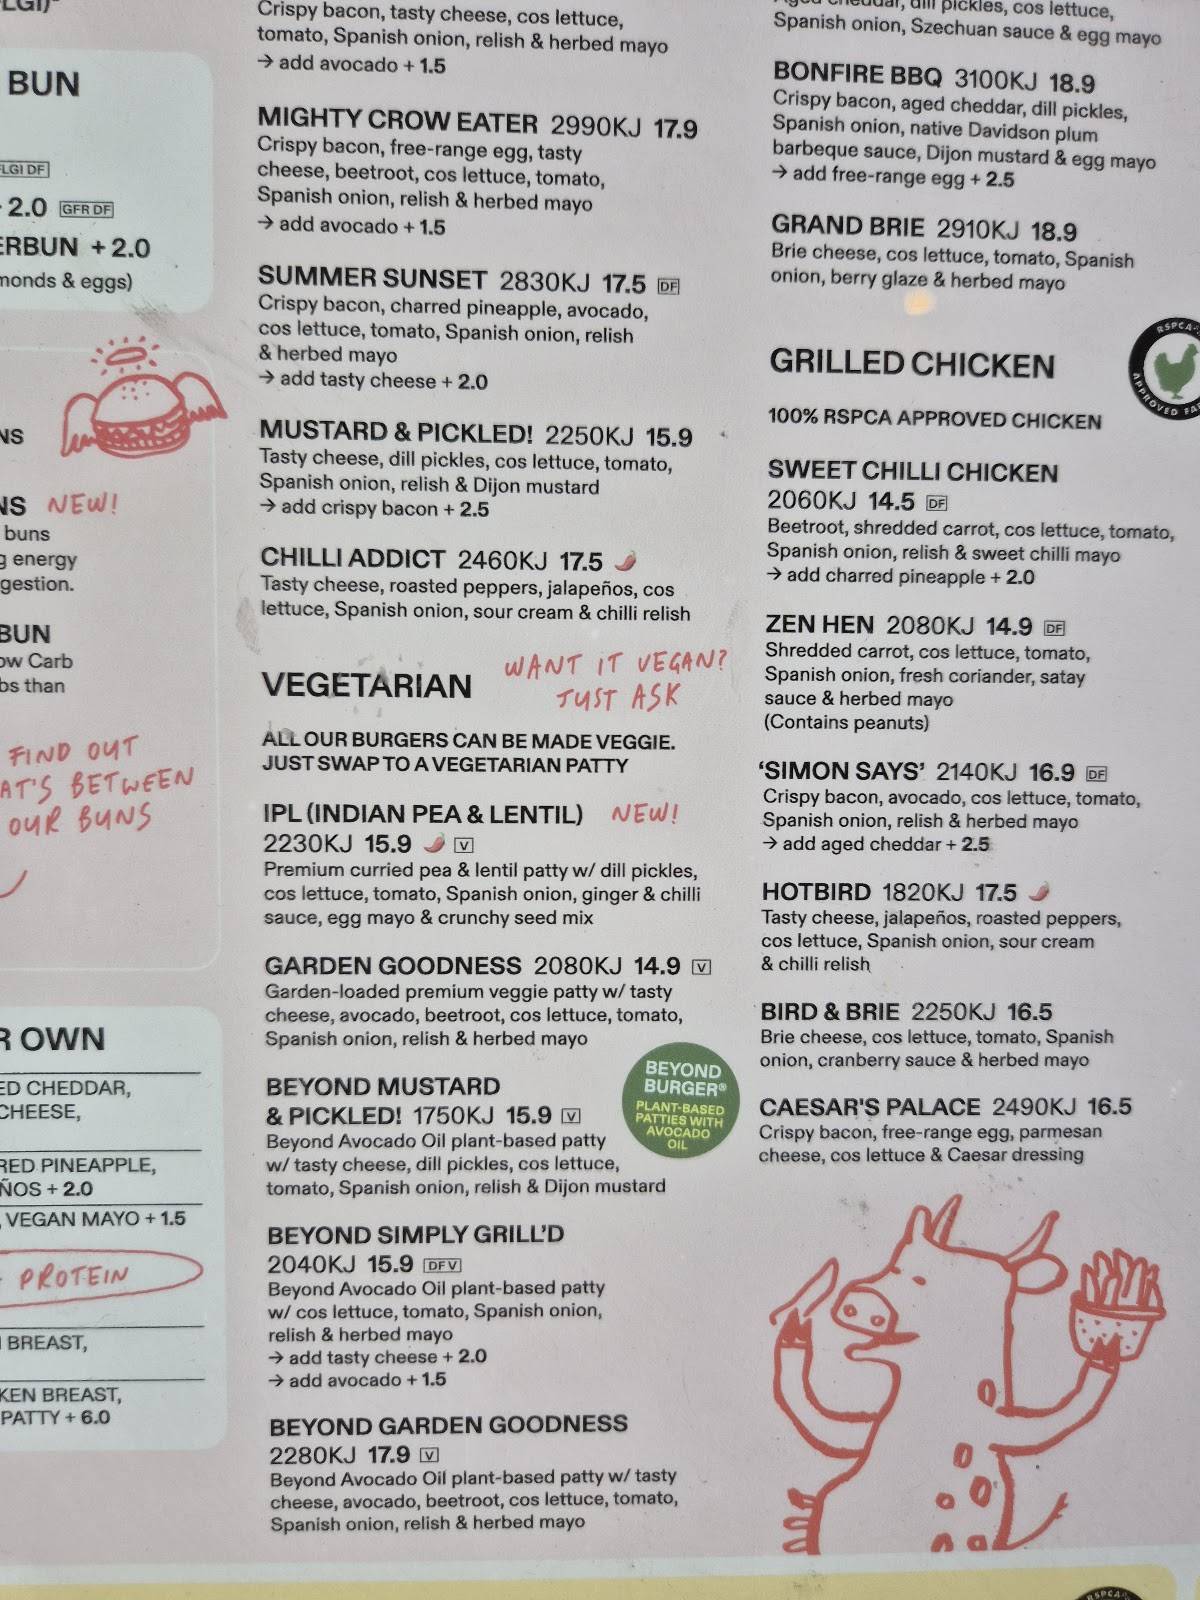 BUN
LGI DF
2.0 GFR DF
ERBUN + 2.0
monds & eggs)
NS
NS NEW!
buns
g energy
gestion.
BUN
ow Carb
bs than
FIND OUT
AT'S BETWEEN
OUR BUNS
R OWN
ED CHEDDAR,
CHEESE,
RED PINEAPPLE,
ÑOS + 2.0
, VEGAN MAYO + 1.5
PROTEIN
BREAST,
KEN BREAST,
PATTY + 6.0
Crispy bacon, tasty cheese, cos lettuce,
tomato, Spanish onion, relish & herbed mayo
→ add avocado + 1.5
MIGHTY CROW EATER 2990KJ 17.9
Crispy bacon, free-range egg, tasty
cheese, beetroot, cos lettuce, tomato,
Spanish onion, relish & herbed mayo
→ add avocado + 1.5
SUMMER SUNSET 2830KJ 17.5 DF
Crispy bacon, charred pineapple, avocado,
cos lettuce, tomato, Spanish onion, relish
& herbed mayo
→ add tasty cheese + 2.0
MUSTARD & PICKLED! 2250KJ 15.9
Tasty cheese, dill pickles, cos lettuce, tomato,
Spanish onion, relish & Dijon mustard
→ add crispy bacon + 2.5
CHILLI ADDICT 2460KJ 17.5
Tasty cheese, roasted peppers, jalapeños, cos
lettuce, Spanish onion, sour cream & chilli relish
VEGETARIAN
WANT IT VEGAN?
JUST ASK
ALL OUR BURGERS CAN BE MADE VEGGIE.
JUST SWAP TO A VEGETARIAN PATTY
IPL (INDIAN PEA & LENTIL) NEW!
2230KJ 15.9 V
Premium curried pea & lentil patty w/ dill pickles,
cos lettuce, tomato, Spanish onion, ginger & chilli
sauce, egg mayo & crunchy seed mix
GARDEN GOODNESS 2080KJ 14.9 V
Garden-loaded premium veggie patty w/ tasty
cheese, avocado, beetroot, cos lettuce, tomato,
Spanish onion, relish & herbed mayo
BEYOND MUSTARD
& PICKLED! 1750KJ 15.9 V
Beyond Avocado Oil plant-based patty
w/ tasty cheese, dill pickles, cos lettuce,
tomato, Spanish onion, relish & Dijon mustard
BEYOND
BURGER®
PLANT-BASED
PATTIES WITH
AVOCADO
OIL
BEYOND SIMPLY GRILL'D
2040KJ 15.9 DF V
Beyond Avocado Oil plant-based patty
w/ cos lettuce, tomato, Spanish onion,
relish & herbed mayo
→ add tasty cheese + 2.0
→ add avocado + 1.5
BEYOND GARDEN GOODNESS
2280KJ 17.9 V
Beyond Avocado Oil plant-based patty w/ tasty
cheese, avocado, beetroot, cos lettuce, tomato,
Spanish onion, relish & herbed mayo
Aged cheddar, dill pickles, cos lettuce,
Spanish onion, Szechuan sauce & egg mayo
BONFIRE BBQ 3100KJ 18.9
Crispy bacon, aged cheddar, dill pickles,
Spanish onion, native Davidson plum
barbeque sauce, Dijon mustard & egg mayo
→ add free-range egg + 2.5
GRAND BRIE 2910KJ 18.9
Brie cheese, cos lettuce, tomato, Spanish
onion, berry glaze & herbed mayo
GRILLED CHICKEN
RSPCA
APPROVED FA
100% RSPCA APPROVED CHICKEN
SWEET CHILLI CHICKEN
2060KJ 14.5 DF
Beetroot, shredded carrot, cos lettuce, tomato,
Spanish onion, relish & sweet chilli mayo
→ add charred pineapple + 2.0
ZEN HEN 2080KJ 14.9 DF
Shredded carrot, cos lettuce, tomato,
Spanish onion, fresh coriander, satay
sauce & herbed mayo
(Contains peanuts)
'SIMON SAYS' 2140KJ 16.9 DF
Crispy bacon, avocado, cos lettuce, tomato,
Spanish onion, relish & herbed mayo
→ add aged cheddar + 2.5
HOTBIRD 1820KJ 17.5
Tasty cheese, jalapeños, roasted peppers,
cos lettuce, Spanish onion, sour cream
& chilli relish
BIRD & BRIE 2250KJ 16.5
Brie cheese, cos lettuce, tomato, Spanish
onion, cranberry sauce & herbed mayo
CAESAR'S PALACE 2490KJ 16.5
Crispy bacon, free-range egg, parmesan
cheese, cos lettuce & Caesar dressing
RSPCA